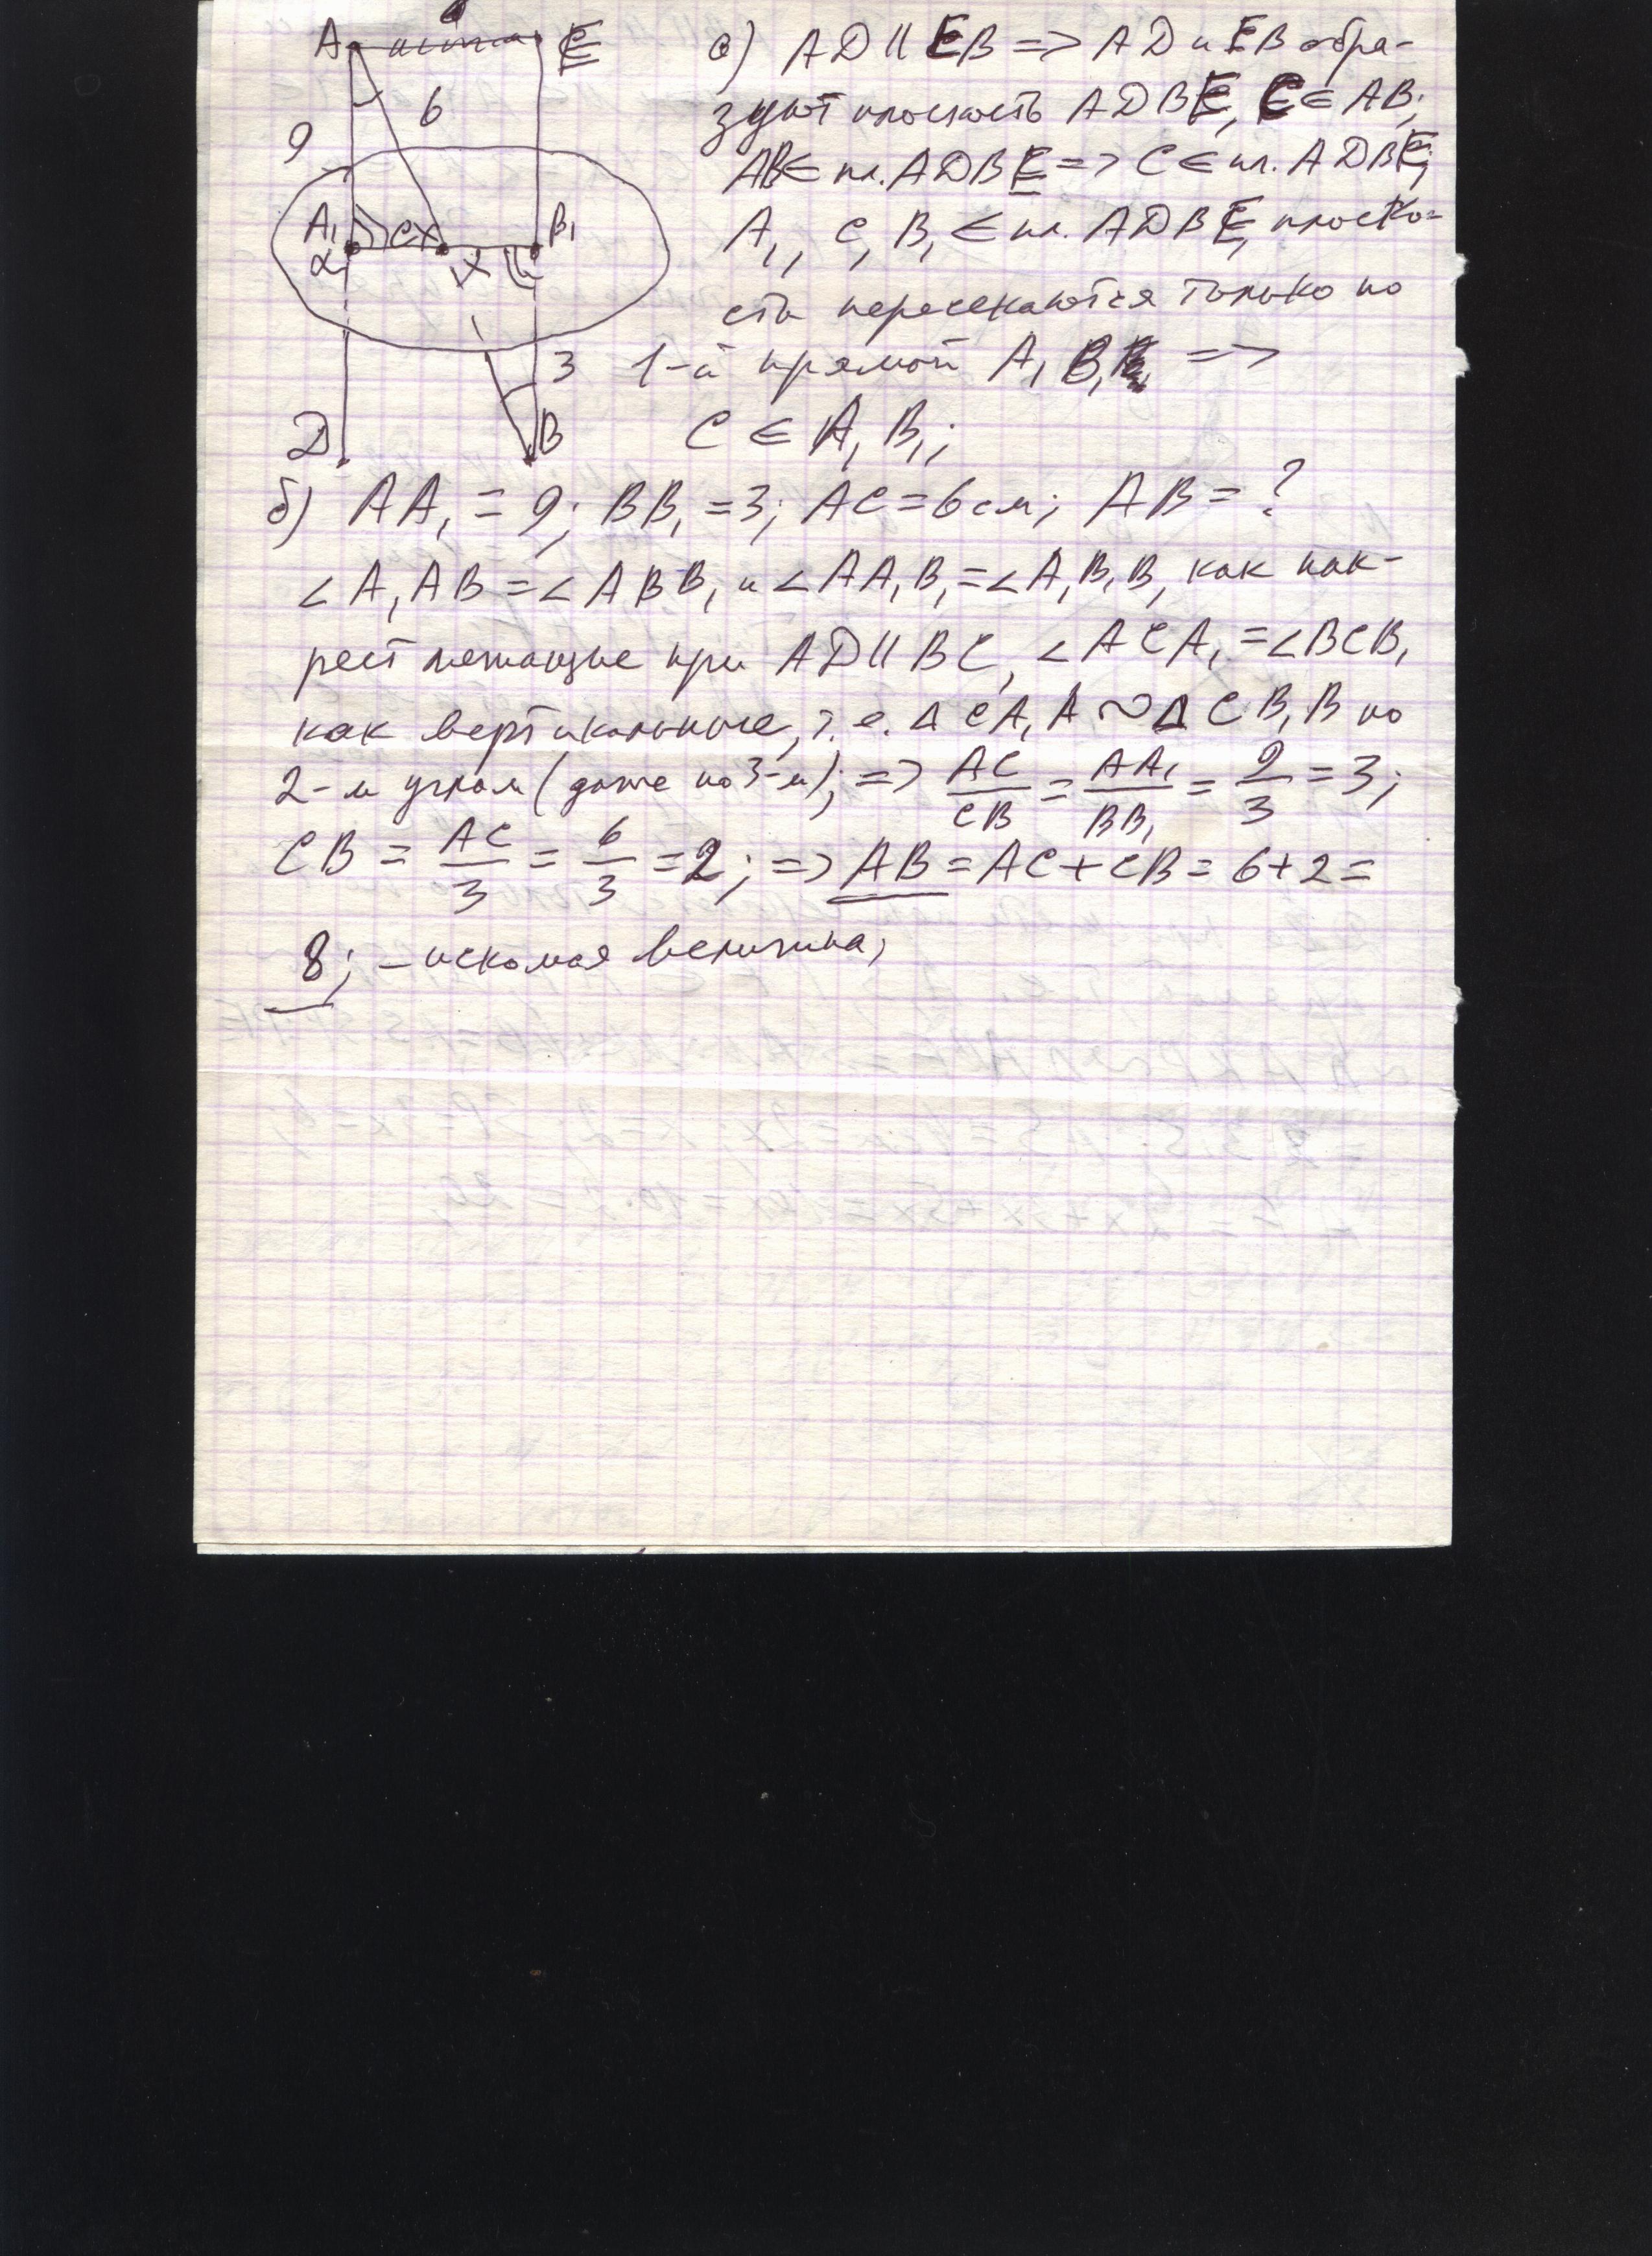 A E
6
9
A₁ C B₁
α
3
D B
а) AD || EB => AD и EB обра-
зуют плоскость ADBE, C ∈ AB;
AB ∈ пл. ADBE => C ∈ пл. ADBE;
A₁, C, B₁ ∈ пл. ADBE, плоско-
сти пересекаются только по
1-й прямой A₁B₁ =>
C ∈ A₁B₁;
б) AA₁ = 9; BB₁ = 3; AC = 6 см; AB = ?
∠A₁AB = ∠ABB₁ и ∠AA₁B₁ = ∠A₁B₁B, как нак-
рест лежащие при AD || BC, ∠ACA₁ = ∠BCB₁
как вертикальные, т.е. Δ CA₁A ~ Δ CB₁B по
2-м углам (даже по 3-м); => AC/CB = AA₁/BB₁ = 9/3 = 3;
CB = AC/3 = 6/3 = 2; => AB = AC + CB = 6 + 2 =
8; – искомая величина;